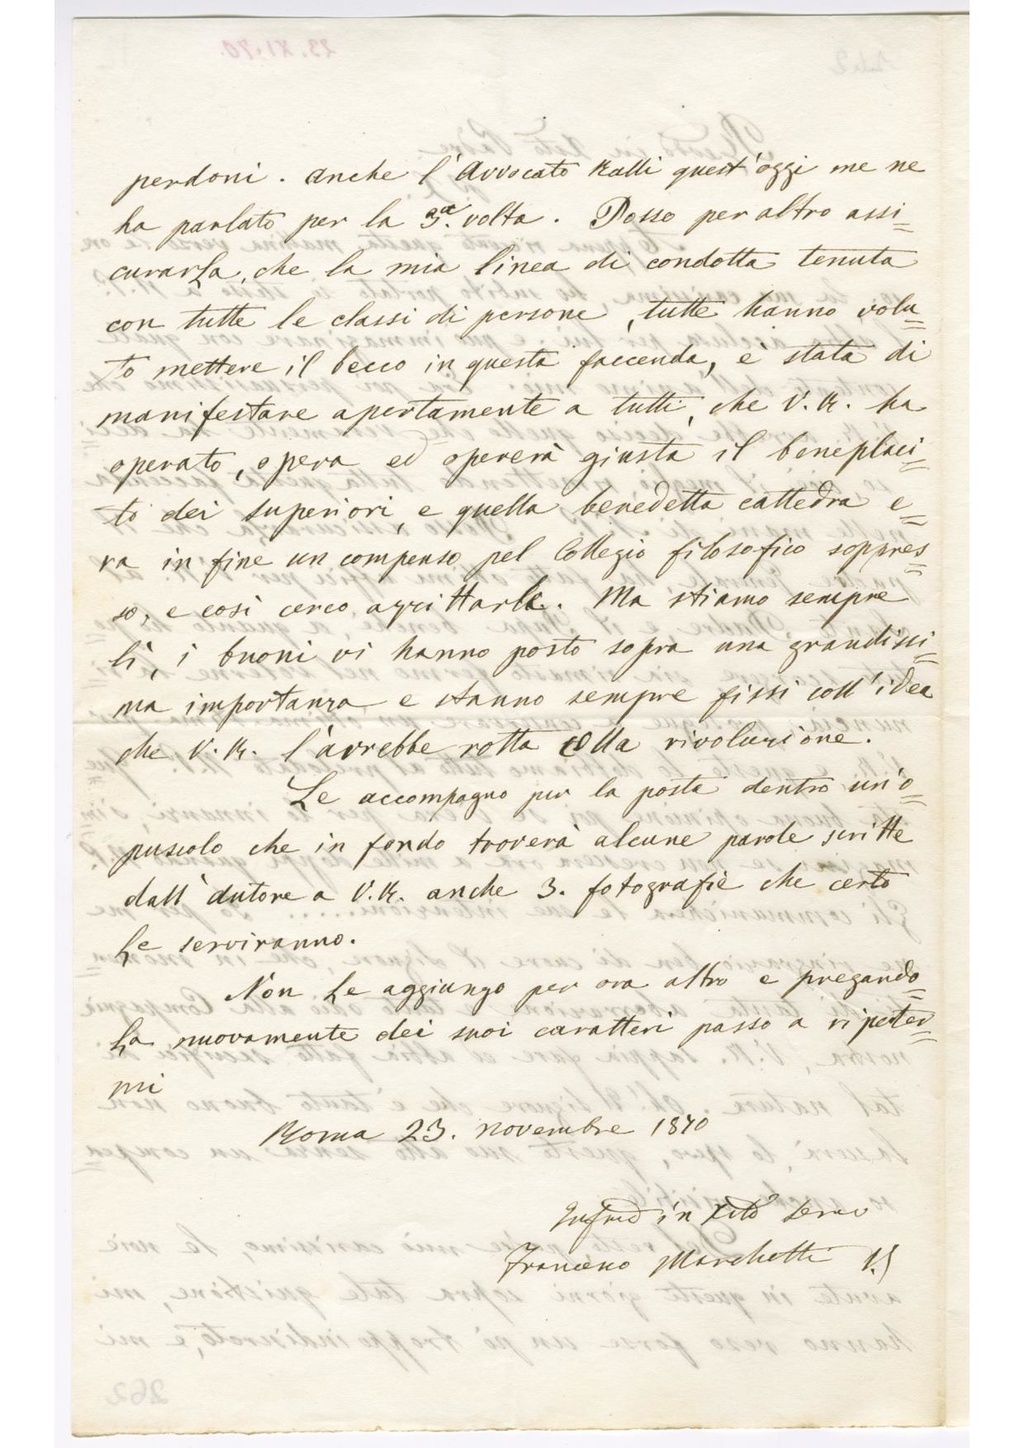 perdoni. Anche l'Avvocato Ralli quest'oggi me ne
ha parlato per la 3.a volta. Posso per altro assi=
curarLa, che la mia linea di condotta tenuta
con tutte le classi di persone, tutte hanno volu=
to mettere il becco in questa faccenda, è stata di
manifestare apertamente a tutti, che V. R. ha
operato, opera ed opererà giusta il beneplaci=
to dei superiori, e quella benedetta cattedra e=
ra in fine un compenso pel Collegio filosofico soppres=
so, e così cerco aggiustarla. Ma stiamo sempre
lì, i buoni vi hanno posto sopra una grandissi=
ma importanza e stanno sempre fissi coll'idea
che V. R. l'avrebbe rotta colla rivoluzione.
Le accompagno per la posta dentro un'o=
puscolo che in fondo troverà alcune parole scritte
dall'autore a V. R. anche 3. fotografie che certo
Le serviranno.
Non Le aggiungo per ora altro e pregando=
La nuovamente dei suoi caratteri passo a ripeter=
mi
Roma 23. novembre 1870
in Xto servo
Francesco Marchetti